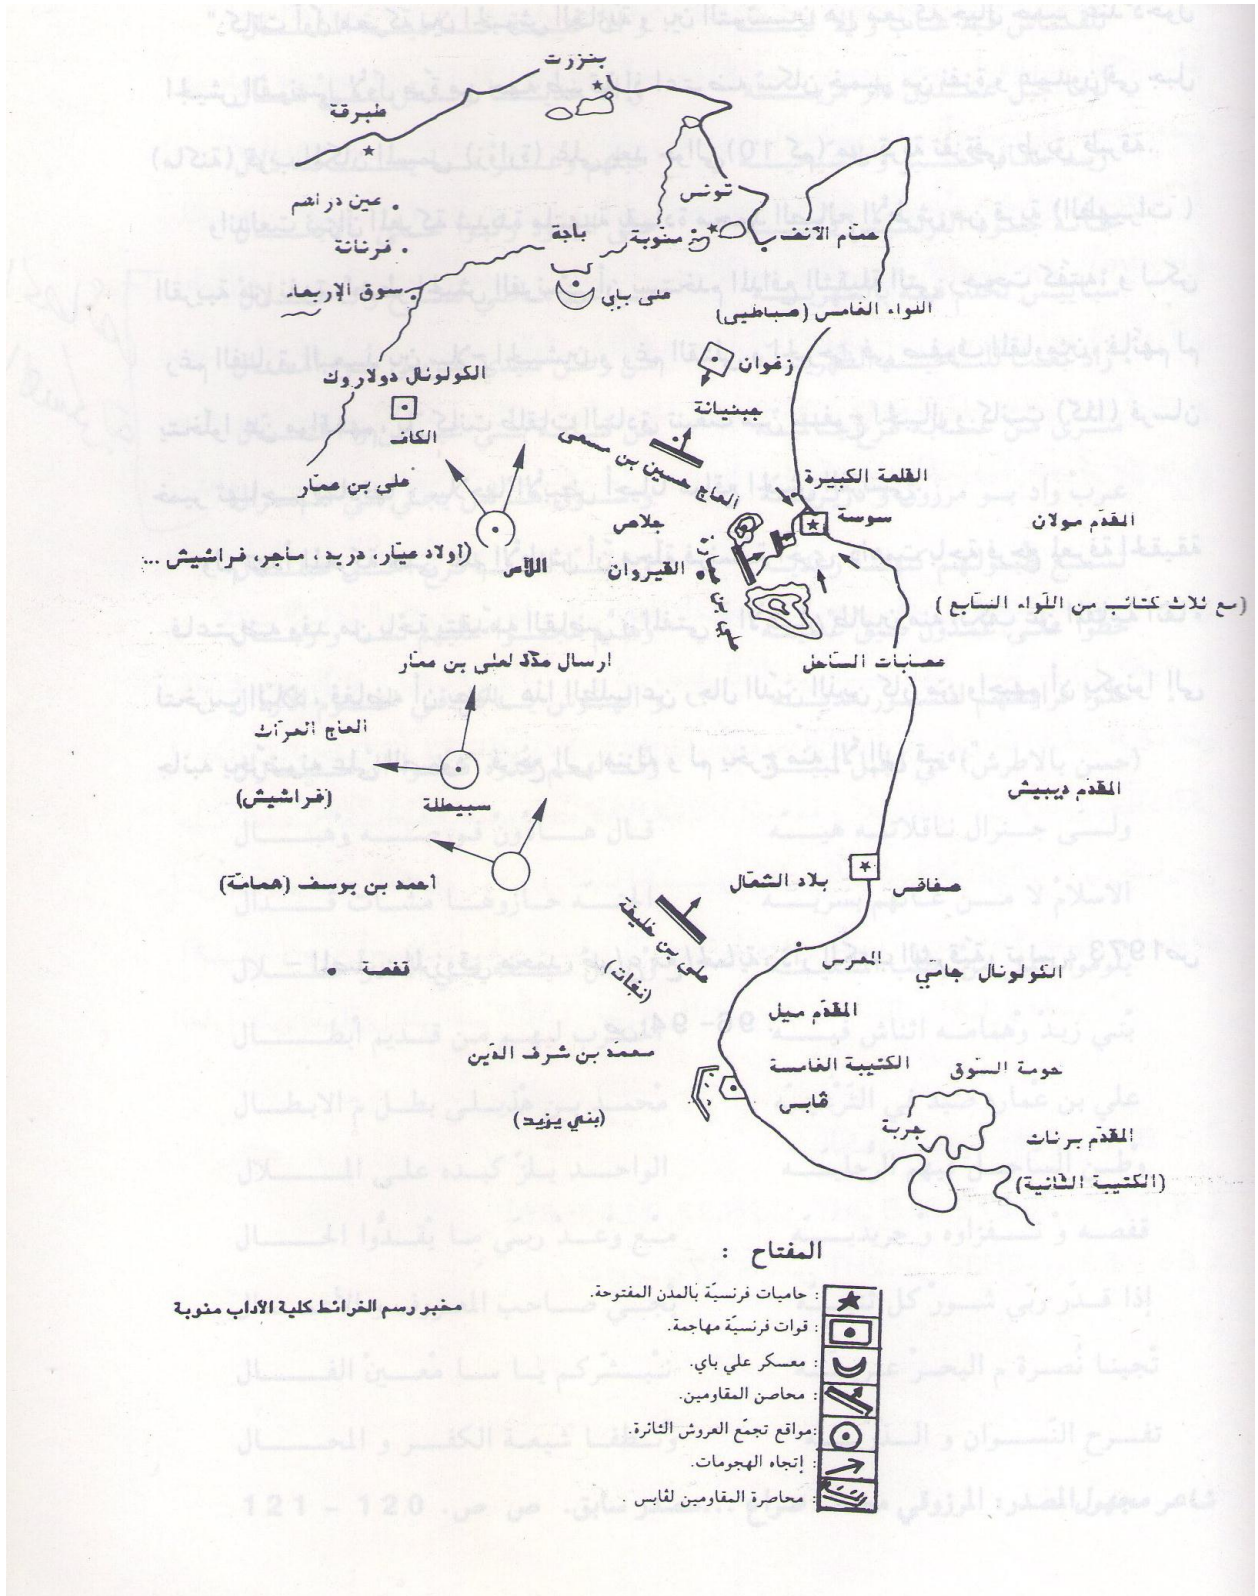 بنزرت
طبرقة
عين دراهم
تونس
منوبة
حمّام الأنف
باجة
فرنانة
سوق الإربعاء
علي باي
اللواء الخامس (صباطيي)
زغوان
جبنيانة
الكولونال دولاروك
الكاف
علي بن عمّار
الحاج حسين بن مسعي
القلعة الكبيرة
سوسة
المقدّم مولان
جلاص
القيروان
علي بن عمارة
(أولاد عيّار، دريد، ماجر، فراشيش ...
اللاّس
(مع ثلاث كتائب من اللّواء السّابع)
عصابات السّاحل
ارسال مدّد لعلي بن عمّار
الحاج الحرّاث
(فراشيش)
سبيطلة
المقدّم ديبيش
أحمد بن يوسف (همامّة)
بلاد الشمّال
صفاقس
علي بن خليفة
(نفّات)
قفصة
المحرس
الكولونال جامّي
المقدّم ميل
محمّد بن شرف الدّين
(بني يزيد)
الكتيبة الخامسة
ڨابس
حومة السّوق
جربة
المقدّم برنات
(الكتيبة الثانية)
المفتاح :
: حاميات فرنسيّة بالمدن المفتوحة.
: قوات فرنسيّة مهاجمة.
: معسكر علي باي.
: محاصن المقاومين.
:مواقع تجمّع العروش الثائرة.
: إتجاه الهجومات.
: محاصرة المقاومين لڨابس .
مخبر رسم الخرائط كلية الآداب منوبة